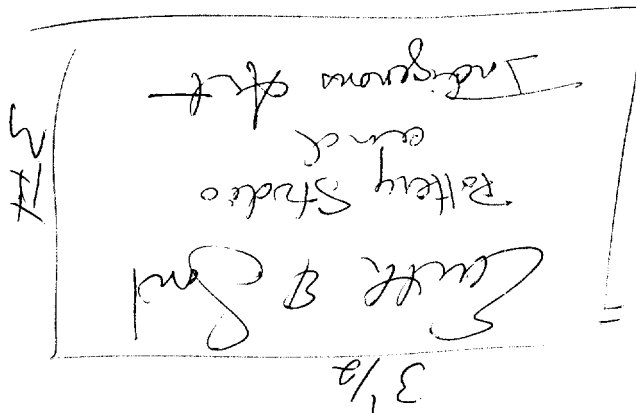 3 1/2
Earth & Soul
Pottery Studio
and
Indigenous Art
3 ft